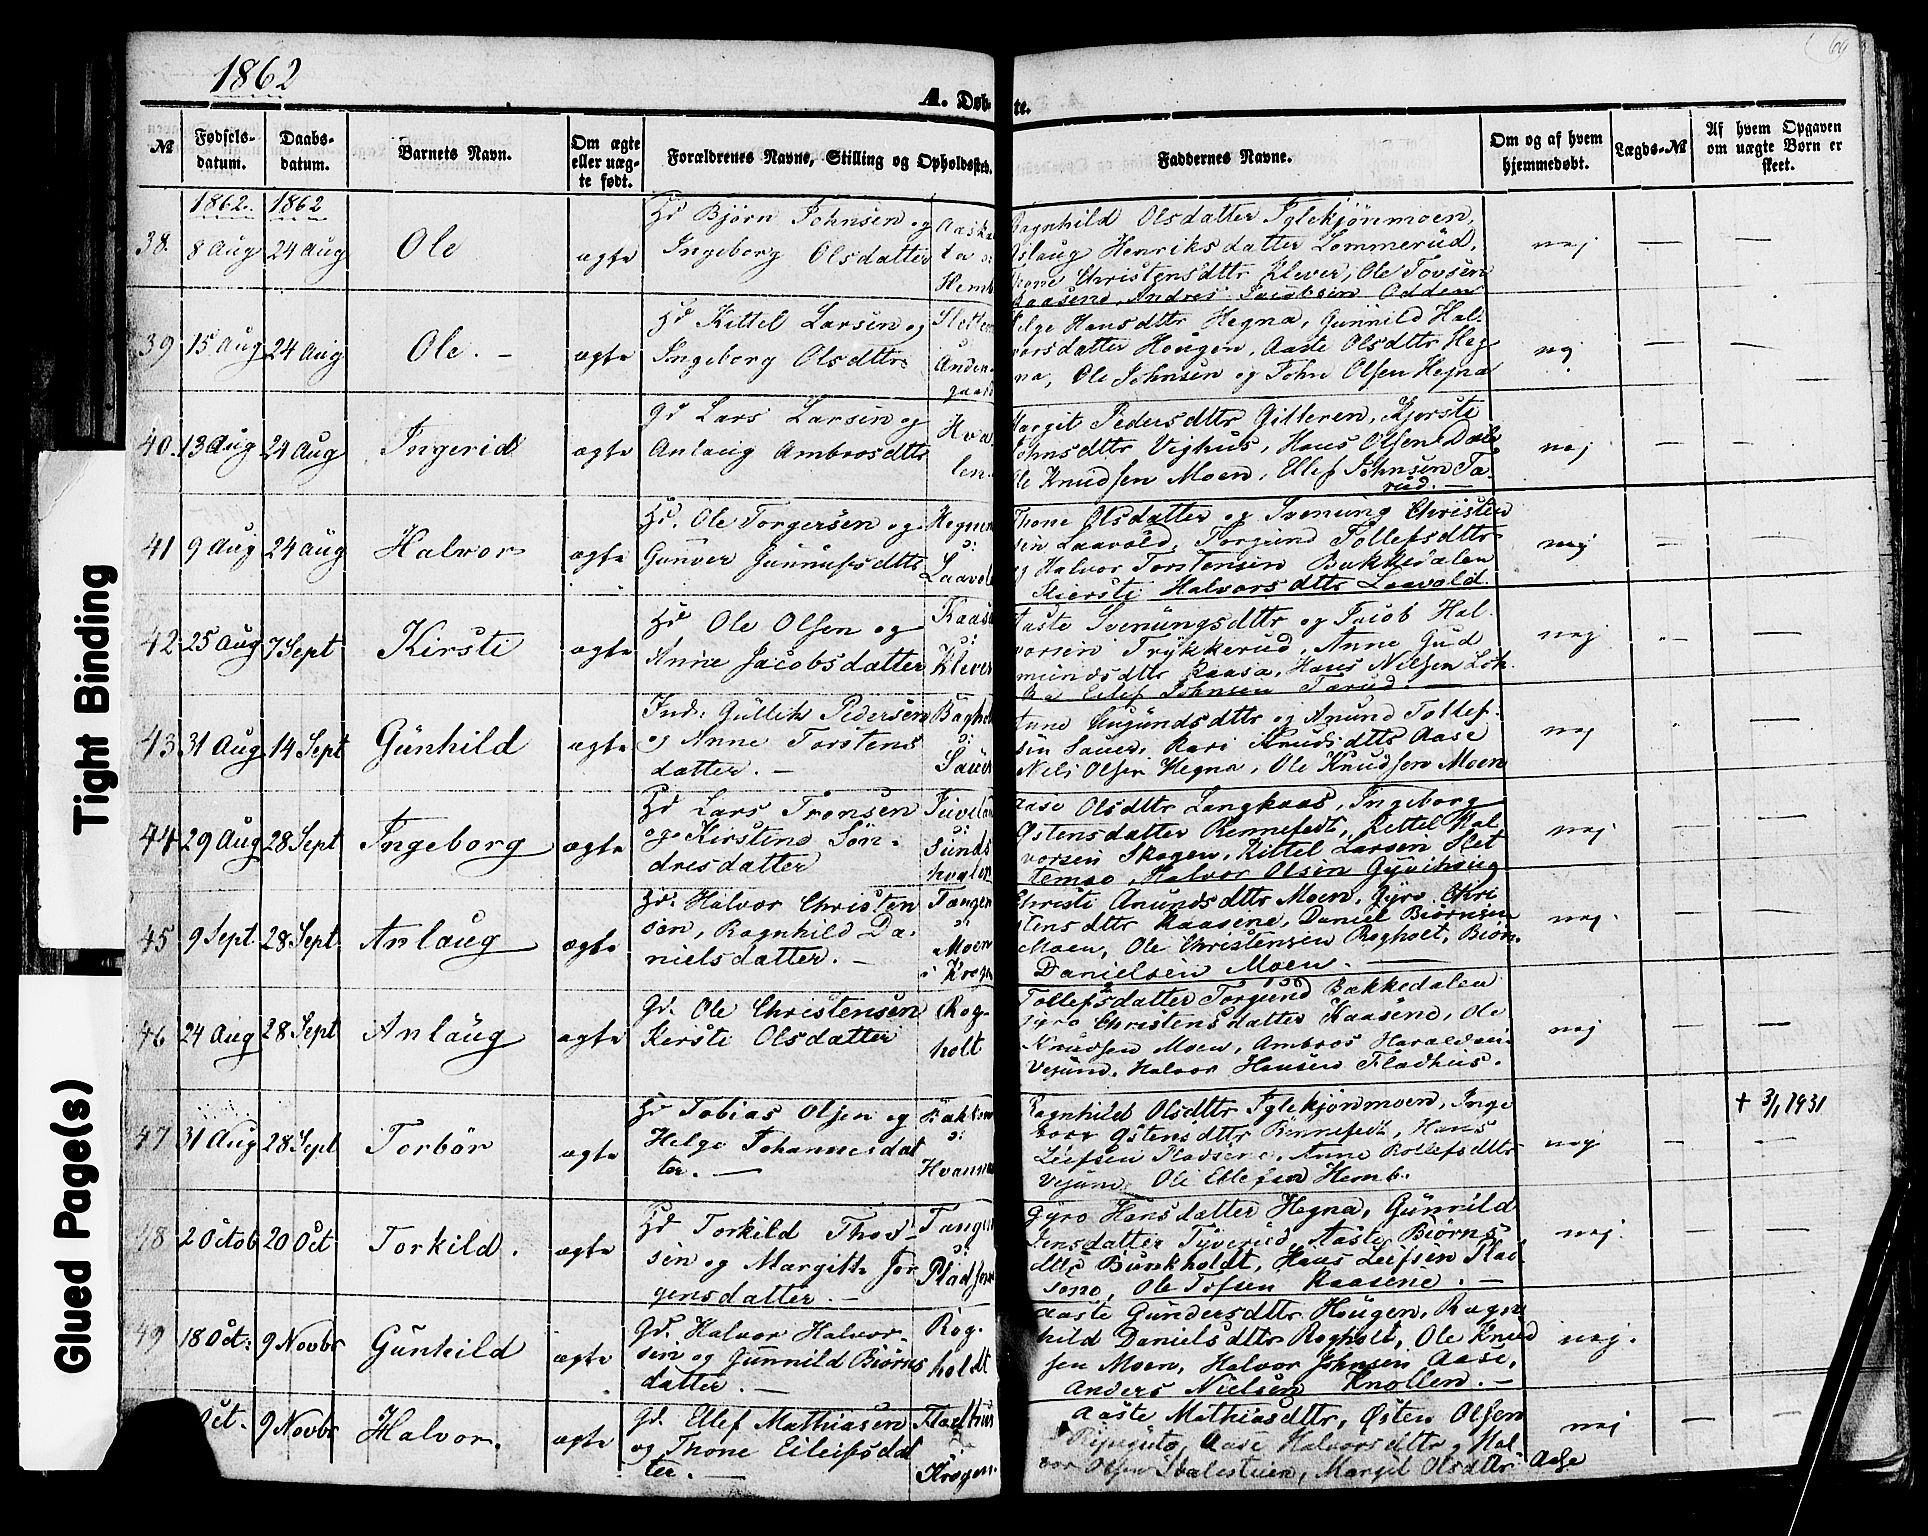 1862
A. Døb- te.
№
Fødsels- datum.
Daabs- datum.
Barnets Navn.
Om ægte eller uæg- te født.
Forældrenes Navne, Stilling og Opholdssted.
Faddernes Navne.
Om og af hvem hjemmedøbt.
Lægds-№
Af hvem Opgaven om uægte Børn er skeet.
1862. 1862
38. 8 Aug 24 Aug Ole ægte
Hd Bjørn Johnsen og
Ingeborg Olsdatter
Hemb
Ragnhild Olsdatter Iglekjønmoen,
Aslaug Henriksdatter Lommerud,
Christensdttr Klever, Ole Tovsen
Raasene, Andres Jacobsen Odden
nej — —
39 15 Aug 24 Aug Ole. — ægte
Hd Kittel Larsen og
Ingeborg Olsdttr
Helge Hansdttr Hegna, Gunnild Hal-
vorsdatter Hougen, Aaste Olsdttr Heg
na, Ole Johnsen og John Olsen Hegna
nej — —
40. 13 Aug 24 Aug Ingerid ægte
Gd Lars Larsen og
Anlaug Ambrosdttr
Hva
len
Margit Pedersdttr Gitteren, Kjersti
Johnsdttr Vejhus, Hans Olsen Dale
Ole Knudsen Moen, Ellef Johnsen Ta
rud. —
nej — —
41 9 Aug 24 Aug Halvor ægte
Hd. Ole Torgersen og
Gunver Gunnufsdttr
Thone Olsdatter og Svenung Christen
sen Laavold, Torgund Tollefsdttr
og Halvor Torstensen Bakkedalen
Kjersti Halvorsdttr Laavold.
nej — —
42. 25 Aug 7 Sept Kirste ægte
Hd Ole Olsen og
Anne Jacobsdatter
Raasa
Klever
Aaste Svenungsdttr og Jacob Hal-
vorsen Trykkerud, Anne Gud
mundsdttr Raasa, Hans Nilsen Løk
ka Eilef Johnsen Tarud. —
nej — —
43 31 Aug 14 Sept Günhild ægte
Ind. Güllik Pedersen
og Anne Torstens
datter. —
Anne Augundsdttr og Anund Tollef-
sen Sauer, Kari Knudsdttr Aase
Nils Olsen Hegna, Ole Knudsen Moen
nej —
44 29 Aug 28 Sept Ingeborg ægte
Hd Lars Tronsen
og Kirstine Søn-
dresdatter
Aase Olsdttr Langkaas, Ingeborg
Østensdatter Rennefedt, Kittel Hal
vorsen Skogen, Kittel Larsen Slet
temeo, Halvor Olsen Gyvihaug
nej — —
45 9 Sept. 28 Sept. Anlaug ægte
Hd. Halvor Christen
sen, Ragnhild Da-
nielsdatter. —
Tangen
Moen
i Krogen
Christi Anundsdttr Moen, Gyro Chri
stensdttr Raasene, Daniel Biørnsen
Moen, Ole Christensen Rogholt, Biørn
Danielsen Moen. —
nej. — —
46 24 Aug 28 Sept Anlaüg ægte
Gd. Ole Christensen
Kerste Olsdatter
Rog-
holt
Tollefsdatter Torgund Bakkedalen
Gyro Christensdatter Raasene, Ole
Knudsen Moen, Ambros Haraldsen
Vejund, Halvor Hansen Fladhus.
nej — —
47 31 Aug 28 Sept Torbør ægte
Hd Tobias Olsen og
Helge Johannesdat
ter. —
Bakken
Ragnhild Olsdttr Iglekjønmoen, Inge
borr Østensdttr Rennefedt, Hans
Leifsen Pladsene, Anne Rollefsdttr
Vejund, Ole Ellefsen Hemb.
nej — —
+ 3/1 1931
48 2 Octob 20 Oct Torkild. ægte
Hd Torkild Thov-
sen og Margitte Jør
gensdatter. —
Tangen
Gyro Hansdatter Hegna, Günnild
Jensdatter Tyverud, Aaste Biørns
dttr Bunkholdt, Hans Leifsen Plad-
sene, Ole Tofsen Raasene. —
nej. — —
49 18 Oct. 9 Novbr Günhild ægte
Gd. Halvor Halvor-
sen og Günnild Biørns
datter. —
Rog-
holdt
Aaste Gundersdttr Hougen, Ragn
hild Danielsdttr Rogholt, Ole Knud
sen Moen, Halvor Johnsen Aase,
Anders Nielsen Knollen. —
nej. — —
Oct. 9 Novbr Halvor. ægte
Gd. Ellef Mathiasen
og Thone Eileifsdat
ter. —
Fladhus
Krogen
Aaste Mathiasdttr, Østen Olsen
Aase Halvorsdttr, Hal-
vor Olsen Margit Olsdttr Aase
nej — —
Tight Binding
Glued Page(s)